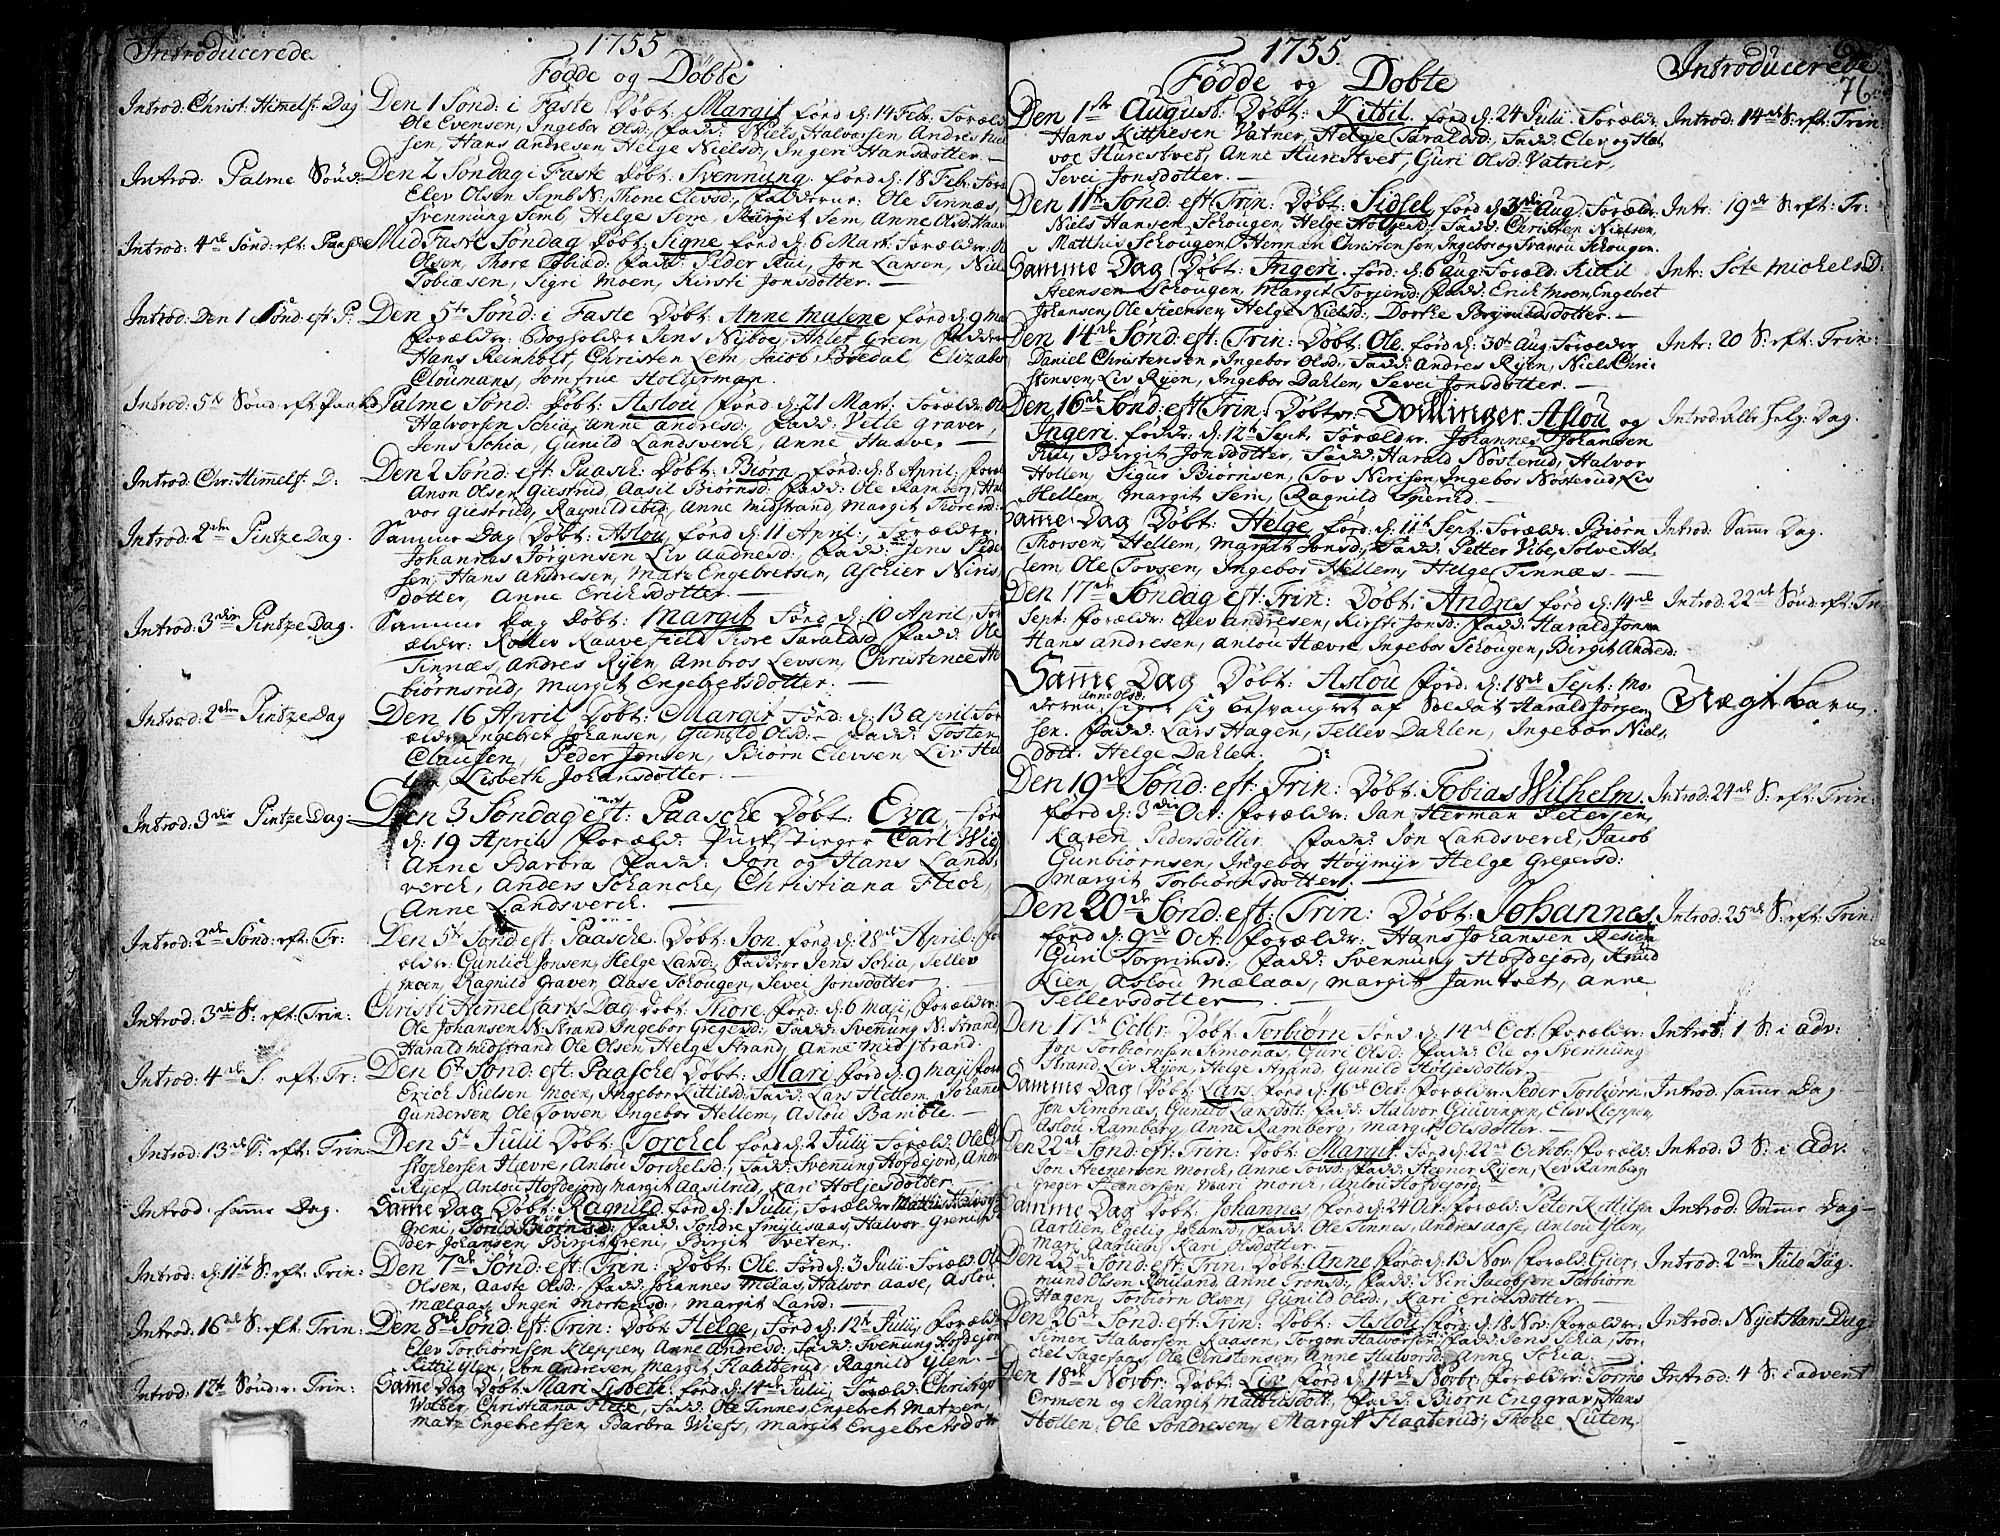 Introducerede
1755
Fødde og Døbte
Introd: Christ: Himmelf: Dag
Den 1 Sønd: i Faste Døbt: Margit förd d: 14 Febr: Foræld:
Ole Evensen, Ingebor Olsd: Fadd: Niels Halvorsen Andres
sen, Hans Andresen Helge Nielsd:, Ingeri Hansdotter. —
Introd: Palme Sønd:
Den 2 Søndag i Faste Døbt: Svennung. förd d: 18 Febr:
Elev Olsen Semb N:, Thone Elevsd:, Fadderne: Ole Tinnæs,
Svennung Semb Helge Sem, Margit Sem, Anne Olsd:
Introd: 4de Sønd: eft: Paasche
Mid Faste Søndag Døbt: Signe. förd d: 6 Mart: Forældr:
Olsen, Thore Tobiæd: Fadd: Peder Rui, Jon Larsen,
Tobiæsen, Sigri Moen, Kirsti Jonsdotter. —
Introd: Den 1 Sønd: eft P:
Den 5te Sønd: i Faste Døbt: Anne Malene förd d: 9
Forældr: Bogholder Jens Nyboe, Ahlet Green, Fadder
Hans Reinholt, Christen Lem, Jacob Boedal Elizabe
Cloumans, Jomfrue Holterman.
Introd: 5te Sønd: eft Paasch
Palme Sønd: Døbt: Aslou förd d: 21 Mart: Forældr:
Halvorsen Schia, Anne Andresd: Fadd: Velle Graver,
Jens Schia, Gunild Landsverch, Anne Haave. —
Introd: Chr: Himmelf: D:
Den 2 Sønd: eft: Paasch: Døbt: Biørn. förd d: 8 April.
Anon Olsen Giestrud, Aasil Biørnsd: Fadd: Ole Ramberg,
vor Giestrud, Ragnild ibid, Anne Midstrand, Margit
Introd: 2den Pintze Dag.
Samme Dag Døbt: Aslou, förd d: 11 April: Forældr:
Johannes Jørgensen Liv Audnesd: Fadd: Jens Pede
sen, Hans Andresen, Mate Engebretsen, Aschier Niris
dotter, Anne Erichsdotter. —
Introd: 3die Pintze Dag.
Samme Dag Døbt: Margit Förd d: 10 April,
ældr: Rolles Raavefield Thore Taraldsd Fadd: Ole
Tinnæs, Andres Ryen, Ambros Levsen, Christence
biørnsrud, Margit Engebretsdotter. —
Introd: 2den Pintze Dag
Den 16 April Døbt: Margit Förd d: 13 April
ældr Ingebret Johansen, Gunild Olsd: — Fadd: Tosten
Claussen, Peder Jonsen, Biørn Elevsen, Liv
Lisbeth Johansdotter. —
Introd: 3die Pintze Dag:
Den 3 Søndag eft: Paasche Døbt: Eva. —
d: 19 April Foræld: Puckstieger Carl
Anne Barbra Fadd: Jon og Hans Lands
verch, Anders Schanche, Christiana Flech,
Anne Landsverch. —
Introd: 2den Sønd: eft: Tr:
Den 5te Sønd: est: Paasche. Døbt: Jon. förd d: 28de April:
ældr: Guntich Jonsen, Helge Larsd:, Faddere Jens Schia, Tellev
Moen, Ragnild Graver, Aase Schougen, Sevei Jonsdotter —
Introd: 3die S: eft: Trin:
Christi Himmelfarts Dag Døbt: Thore förd: d: 6 Maji, Forældr:
Ole Johansen N: Strand, Ingebor Gregersd: Fadd: Svennung N: Strand,
Harald Midstrand Ole Olsen, Helge Strand, Anne Midstrand.
Introd: 4de S: eft: Tr:
Den 6te Sønd: est: Paasche Døbt: Mari förd d: 9 Maji
Erich Nielsen Moen, Ingebor Kittilsd: Fadd: Lars Hellem, Johanes
Gundersen Ole Tovsen Ingebor Hellem, Aslou Bamble. —
Introd: 13de S: eft: Trin:
Den 5te Julii Døbt: Torchel förd d: 2 Julii Foræld: Ole
stophersen Hævre, Anlou Torchelsd:, Fadd: Svennung Hofdejord,
Ryen, Anlou Hofdejord, Margit Aasilrud, Kari Holjesdotter.
Introd: samme Dag.
Samme Dag Døbt: Ragnild. förd d: 1 Julii, Forældr Mathis Halvors
Greni, Torild Biørnsd: Fadd: Sondre Smylisaas, Halvor Greni
der Johansen, Birgit Greni, Birgit Tveten.
Introd: d: 11te S: eft: Trin:
Den 7de Sønd: est Trin: Døbt: Ole Förd d: 3 Julii Foræld Ole
Olsen, Aaste Olsd: Fadd: Johannes Mælas, Halvor Aase, Aslou
Mælaas, Ingen Mortensd:, Margit Larsd: —
Introd: 16de S: eft: Trin:
Den 8de Sønd: est: Trin: Døbt Helge, Förd d: 12te Julii, Forældr
Elev Torbiørnsen Kleppen, Anne Andresd: Fadd: Svennung Hofdejord
Kittil Ylen, Jon Andresen, Margit Flaatterud, Ragnild Ylen. —
Introd: 12te Sønd: e: Trin:
Samme Dag Døbt: Mari Lisbeth: förd: d: 14de Julii, Foræld: Christop
Wolber, Christiana Flech, Fadd: Ole Tinnes, Engebret Matzen,
Mate Engebretsen, Barbra Wiess, Margit Engebretsdott
1755.
Fødde og Døbte
Introducerede
76
Den 1ste August: Døbt: Kittil. förd d: 24 Julii Forældr,
Hans Kitthesen Vatner, Helge Taraldsd:, Fadd: Elev og Hal
vor Hurestvet, Anne Hurestvet, Guri Olsd: Vatner,
Sevei Jonsdotter. —
Introd: 14de S: eft: Trin:
Den 11te Sønd: est Trin: Døbt: Sidsel förd d 3die Aug: Forældr:
Niels Hansen Schougen, Helge Holjesd: Fadd: Christen Nielsen,
Matthis Schougen, Herman Christensen, Ingeborg Svanou Schougen.
Intr: 19de S: eft: Tr:
Samme Dag Døbt: Ingeri. förd: d: 6 Aug: Foræld: Kittil
Steensen Schougen, Margit Torjersd: Fadd: Erich Moen, Engebret
Johansen, Ole Steensen, Helge Nielsd:, Dorthe Brynildsdotter. —
Intr: Scte Michels D:
Den 14de Sønd: est: Trin: Døbt: Ole. förd d: 30te Aug: Forældr
Daniel Christensen, Ingebor Olsd: Fadd: Andres Ryen, Niels Chri
stensen, Liv Ryen, Ingebor Dahlen, Sevei Jonsdotter. —
Intr: 20 S: eft: Trin:
Den 16de Sønd: est Trin: Døbtes Tvillinger. Aslou og
Ingeri. föddr: d: 12te Sept: Forældr. Johannes Johansen
Rui, Birgit Jonsdotter, Fadd: Harald Nøsterud, Halvor
Hollen, Sigur Biørnsen, Tov Nirisen, Ingebor Nøsterud, Liv
Hellem, Margit Sem, Ragnild Spierud. —
Introd: Alle Helg: Dag.
Samme Dag Døbt: Helge förd: d: 11te Sept: Forældr: Biørn
Thorsen, Hellem, Margit Jonsd:, Fadd: Petter Vibe, Solve Hel
lem, Ole Tovsen, Ingebor Hellem, Helge Tinnæs. —
Introd: Samme Dag.
Den 17de Søndag est: Trin: Døbt: Andres förd d: 14de
Sept: Forældr: Elev Andresen, Kirsti Jonsd: Fadd: Harald Jonsen
Hans Andresen, Anlou Hævre, Ingebor Schougen, Birgit Andresd:
Introd: 22de Sønd: eft: Trin
Samme Dag Døbt: Aslou Förd: d: 18de Sept: Mo-
Anne Olsd:
deren, siger sig besvangret af Soldat Harald Jørgen
sen. Fadd: Lars Hagen, Tellev Dahlen, Ingebor Niels
dott. Helge Dahlen.
Uægt barn.
Den 19de Sønd: est: Trin: Døbt: Tobias Wilhelm.
förd d: 3die Oct: Forældr: Jan Herman Petersen,
Karen Pedersdotter. Fadd: Jon Landsverch, Jacob
Gunbiørnsen, Ingebor Høymyr Helge Gregersd:
Margit Torbiørnsdotter. —
Introd: 24de S: eft: Trin:
Den 20de Sønd: est: Trin: Døbt: Johannes,
förd d: 9de Oct: Forældr: Hans Johansen
Guri Torgrimsd: Fadd: Svennung Hofdejord, Knud
Lien, Aslou Mælaas, Margit Jamtvet, Anne
Tellevsdotter —
Introd: 25de S: eft: Trin:
Den 17de Octbr: Døbt: Torbiørn Förd d: 14de Oct: Forældr:
Jon Torbiørnsen Simonæs, Guri Olsd: Fadd: Ole og Svennung
Strand, Liv Ryen, Helge Strand, Gunild Holjesdotter. —
Introd: 1 S: i Adv:
Samme Dag Døbt: Lars, Förd d: 16de Oct: Forældr: Peder Torbiørn
sen Simonæs, Gunild Larsdott: Fadd: Halvor Gjuvingen, Elev Kleppen,
Aslou Ramberg, Anne Ramberg, Margit Olsdotter. —
Introd: samme Dag
Den 22de Sønd: est: Trin: Døbt: Margit. Förd d: 22de Octobr: Foræld
Jon Steenersen Morch, Anne Tovsd: Fadd: Steener Ryen, Lev Ramberg
Greger Steenersen, Mari Morch, Anlou Hofdejord.
Introd: 3 S: i Adv:
Samme Dag Døbt: Johannes förd d: 24 Oct: Foræld: Peter Kittilsen
Aarlien, Egelig Johansd:, Fadd: Ole Tinnes, Andres Aase, Anlou Ylen,
Mari Aarlien, Kari Olsdotter.
Introd: Samme Dag —
Den 25de Sønd: est: Trin: Døbt: Anne förd: d: 13 Nov: Foræld: Gier-
mund Olsen Rouland, Anne Tronsd: Fadd: Niri Jacobsen Torbiørn
Hagen, Torbiørn Olsen, Gunild Olsd: Kari Erichsdotter. —
Introd: 2den Jule Dag.
Den 26de Sønd: est: Trin: Døbt: Aslou, förd: d: 18 Nov: Forældr:
Simen Halvorsen Raasen, Torgon Halvorsd: Fadd: Jens Schia, Tor-
chel Fagefaas, Ole Christensen, Anne Halvorsd: Anne Schia. —
Introd: Nyet Aars Dag
Den 18de Novbr: Døbt: Liv förd d: 14de Novbr: Forældr: Tormo
Ormsen og Margit Mathisdott: Fadd: Biørn Enggrav, Hans
Hollen, Ole Sondresen, Margit Flaatterud, Thone Luten,
Introd: 4 S: i advent